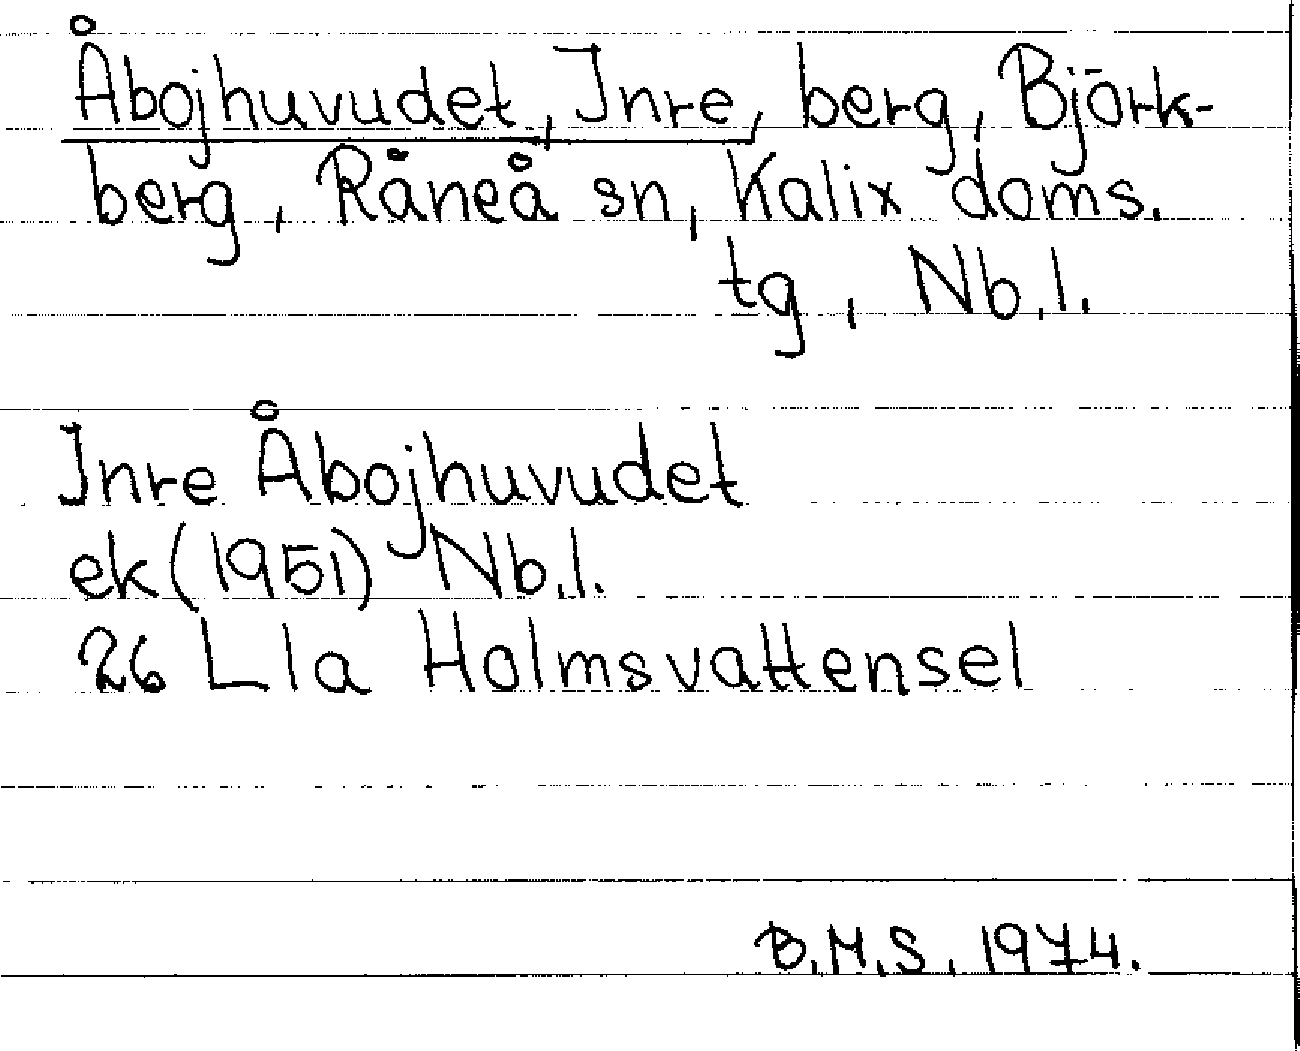 Åbojhuvudet, Inre, berg, Björk-
berg, Råneå sn, Kalix doms.
tg, Nb.l.
Inre Åbojhuvudet
ek (1951) Nb.l.
26 L 1a Holmsvattensel
B.M.S. 1974.